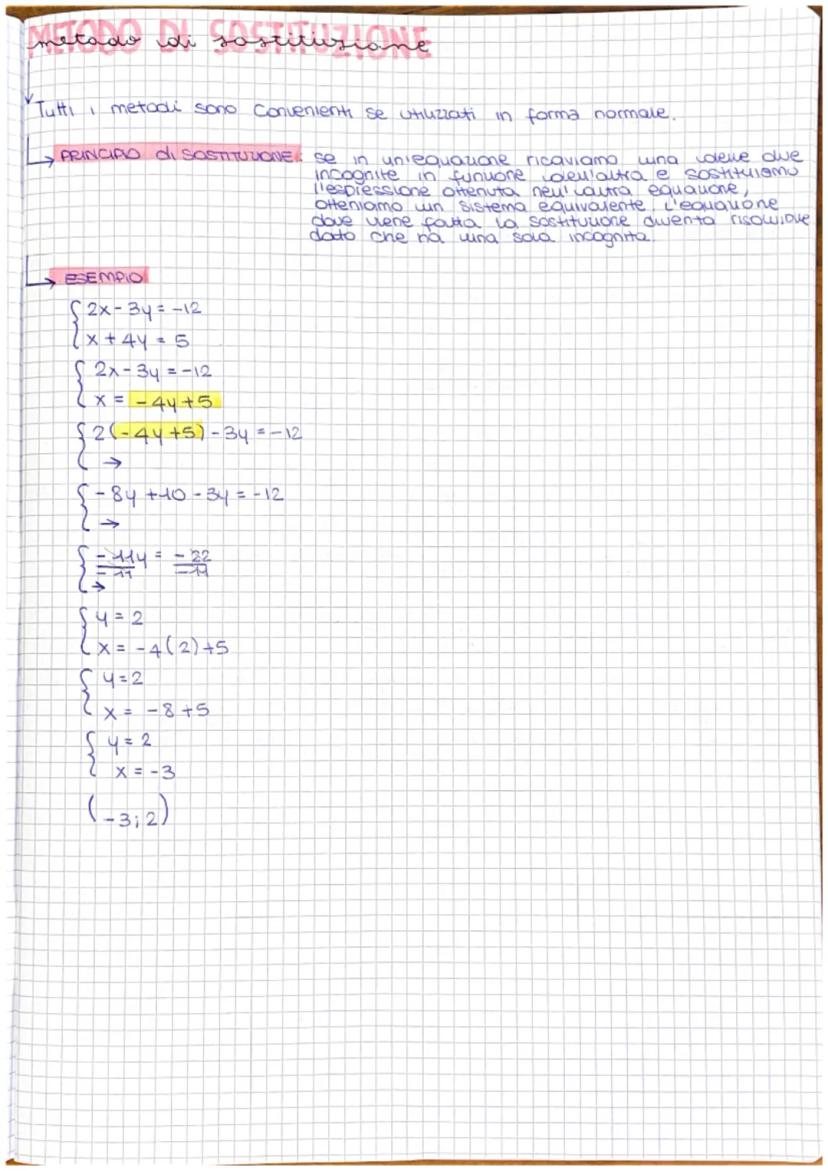 METODO DI SOSTITUZIONE
metodo di sostituzione
Tutti i metodi sono convenienti se utilizzati in forma normale.
PRINCIPIO di SOSTITUZIONE: se in un'equazione ricaviamo una delle due
incognite in funzione dell'altra e sostituiamo
l'espressione ottenuta nell'altra equazione,
otteniamo un sistema equivalente. L'equazione
dove viene fatta la sostituzione diventa risolvibile
dato che ha una sola incognita.
ESEMPIO
2x - 3y = -12
x + 4y = 5
2x - 3y = -12
x = -4y+5
2(-4y+5) - 3y = -12
→
-8y +10 - 3y = -12
→
-11y/-11 = -22/-11
→
y = 2
x = -4(2)+5
y = 2
x = -8+5
y = 2
x = -3
(-3;2)